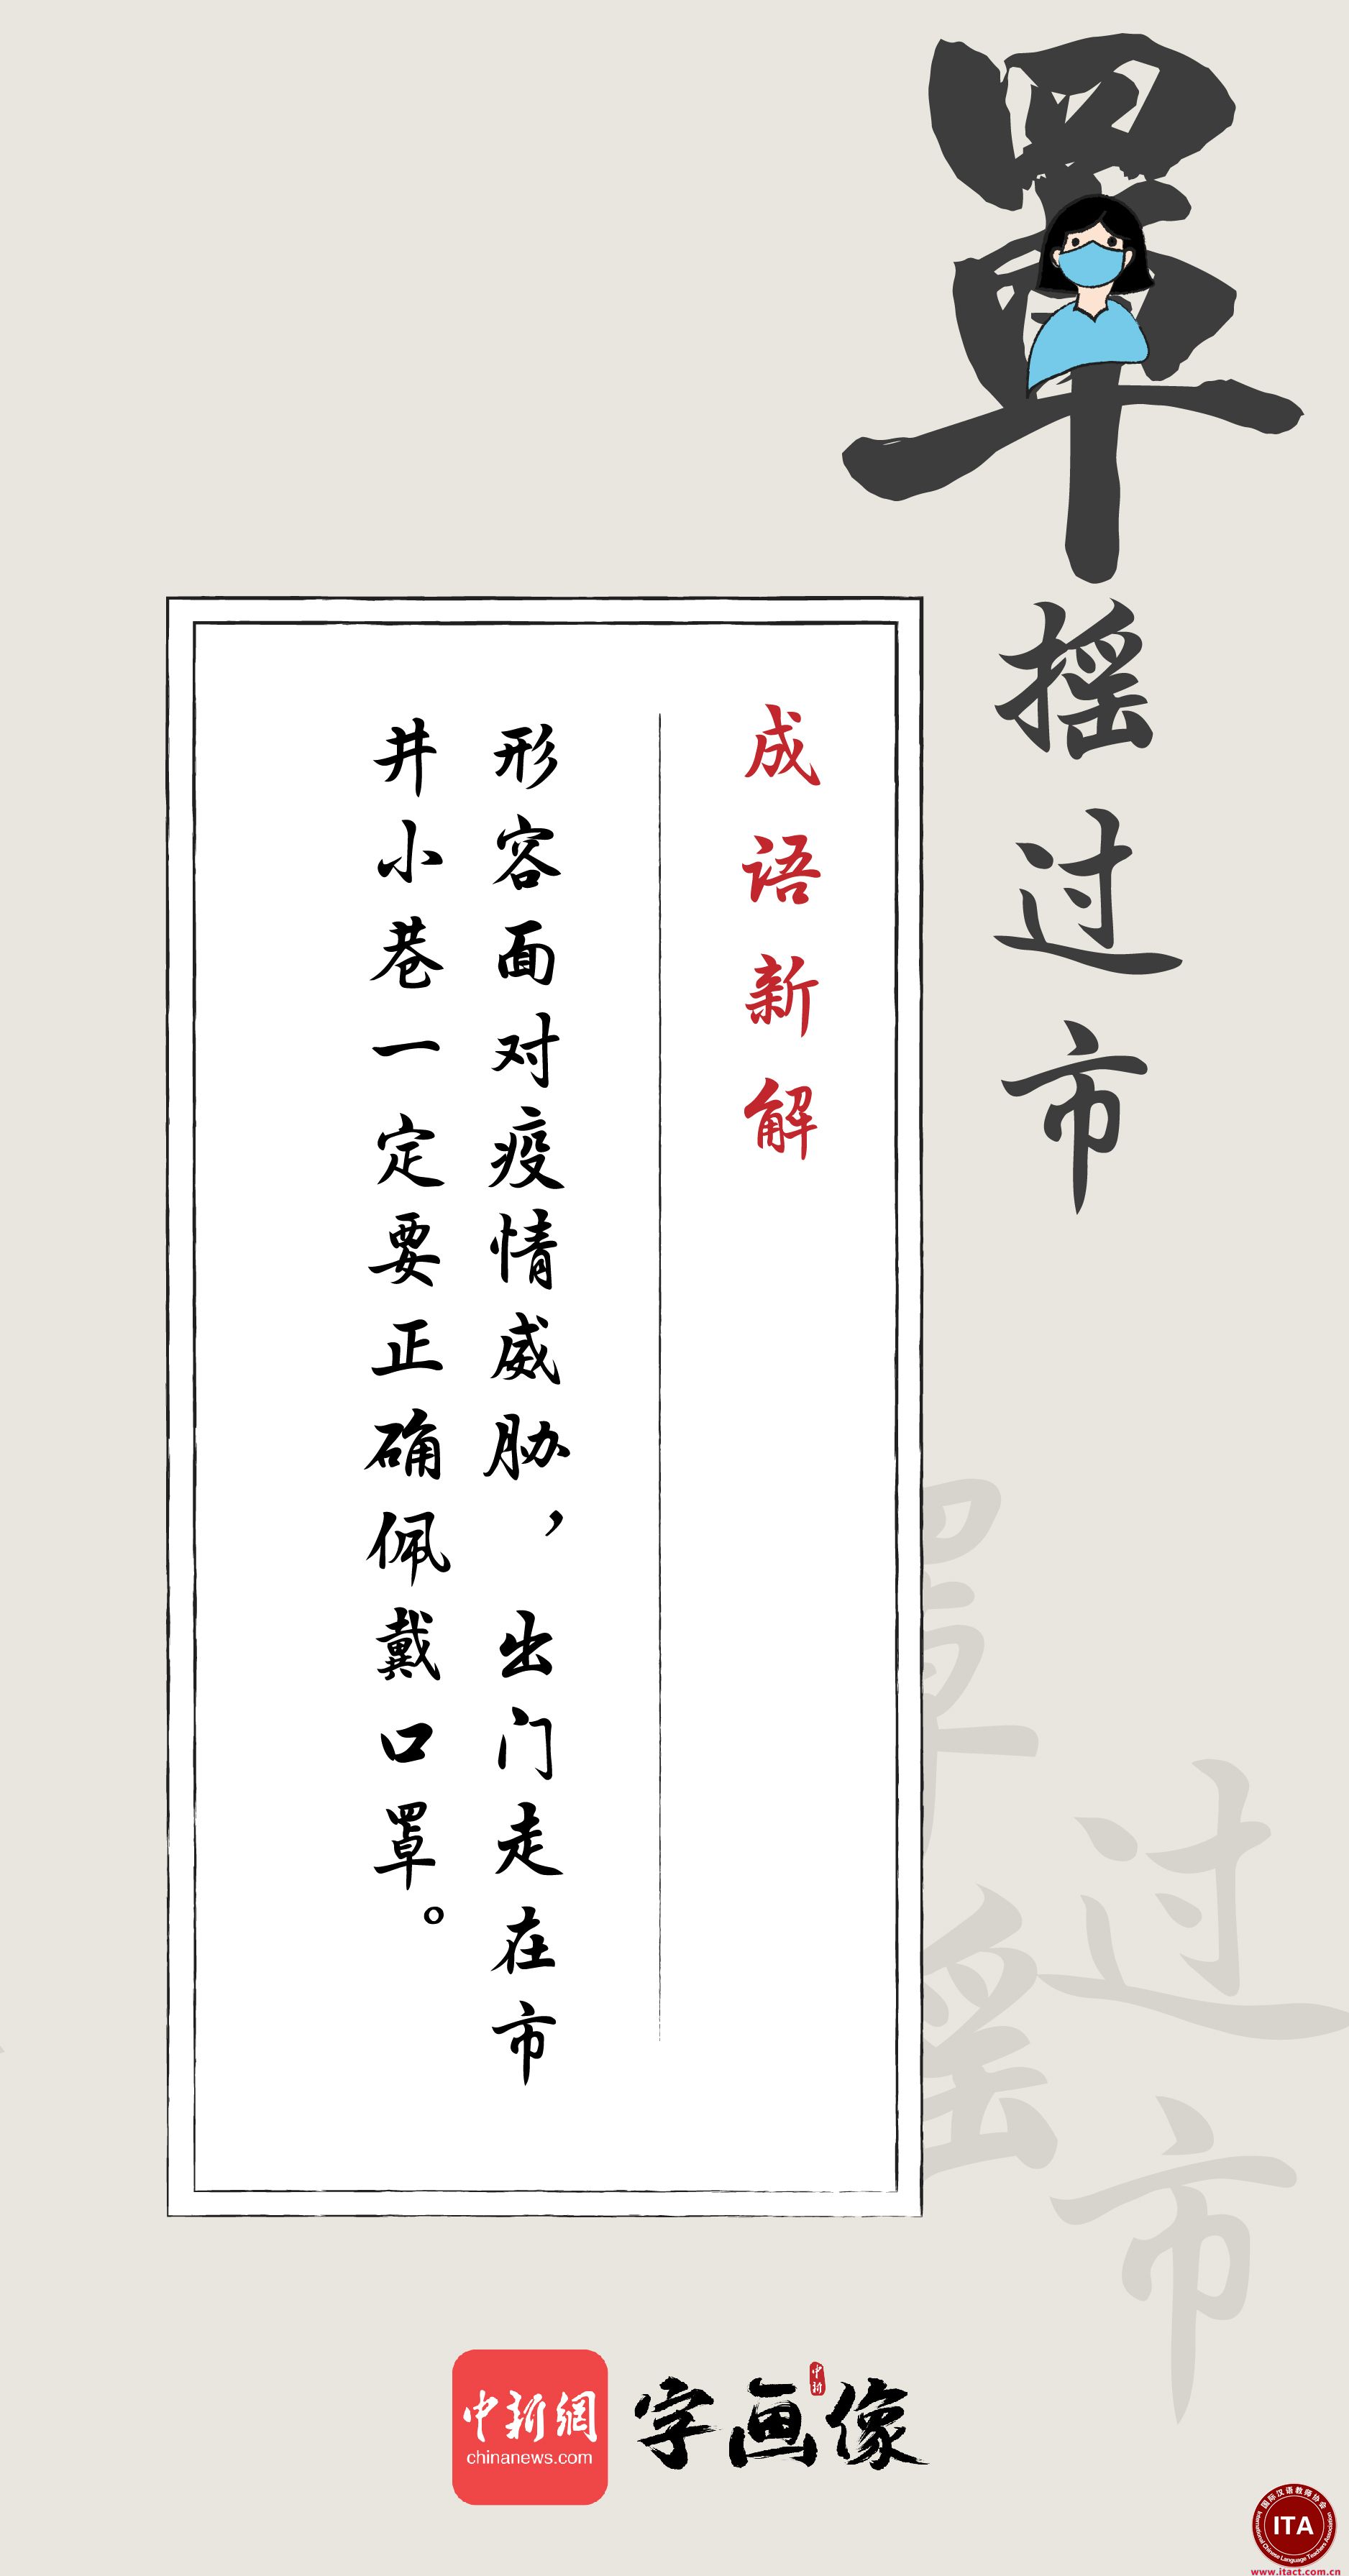 罩摇过市
成语新解
形容面对疫情威胁，出门走在市
井小巷一定要正确佩戴口罩。
罩摇
过市
中新網
chinanews.com
字画像
中新
国际汉语教师协会
ITA
International Chinese Language Teachers Association
www.itact.com.cn